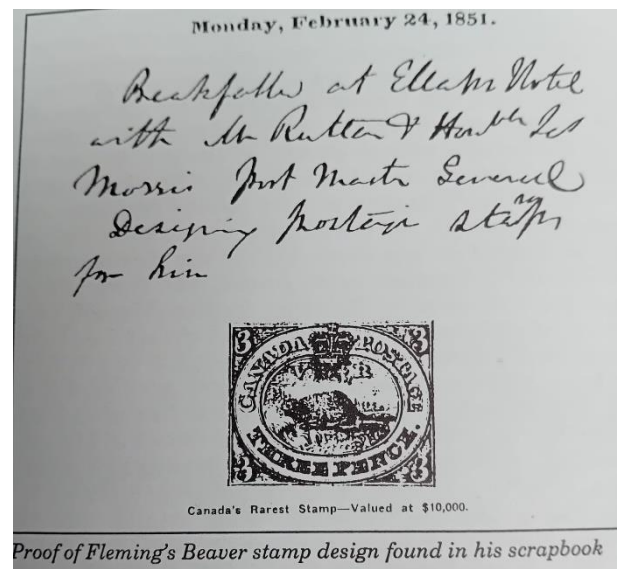 Monday, February 24, 1851.
Breakfasted at Ellahs Hotel
with Mr Rutten & Honble Jas
Morris Post Master General
Designing postage stamps
for him
3 3
CANADA POSTAGE
V R
THREE PENCE.
3 3
Canada's Rarest Stamp—Valued at $10,000.
Proof of Fleming's Beaver stamp design found in his scrapbook